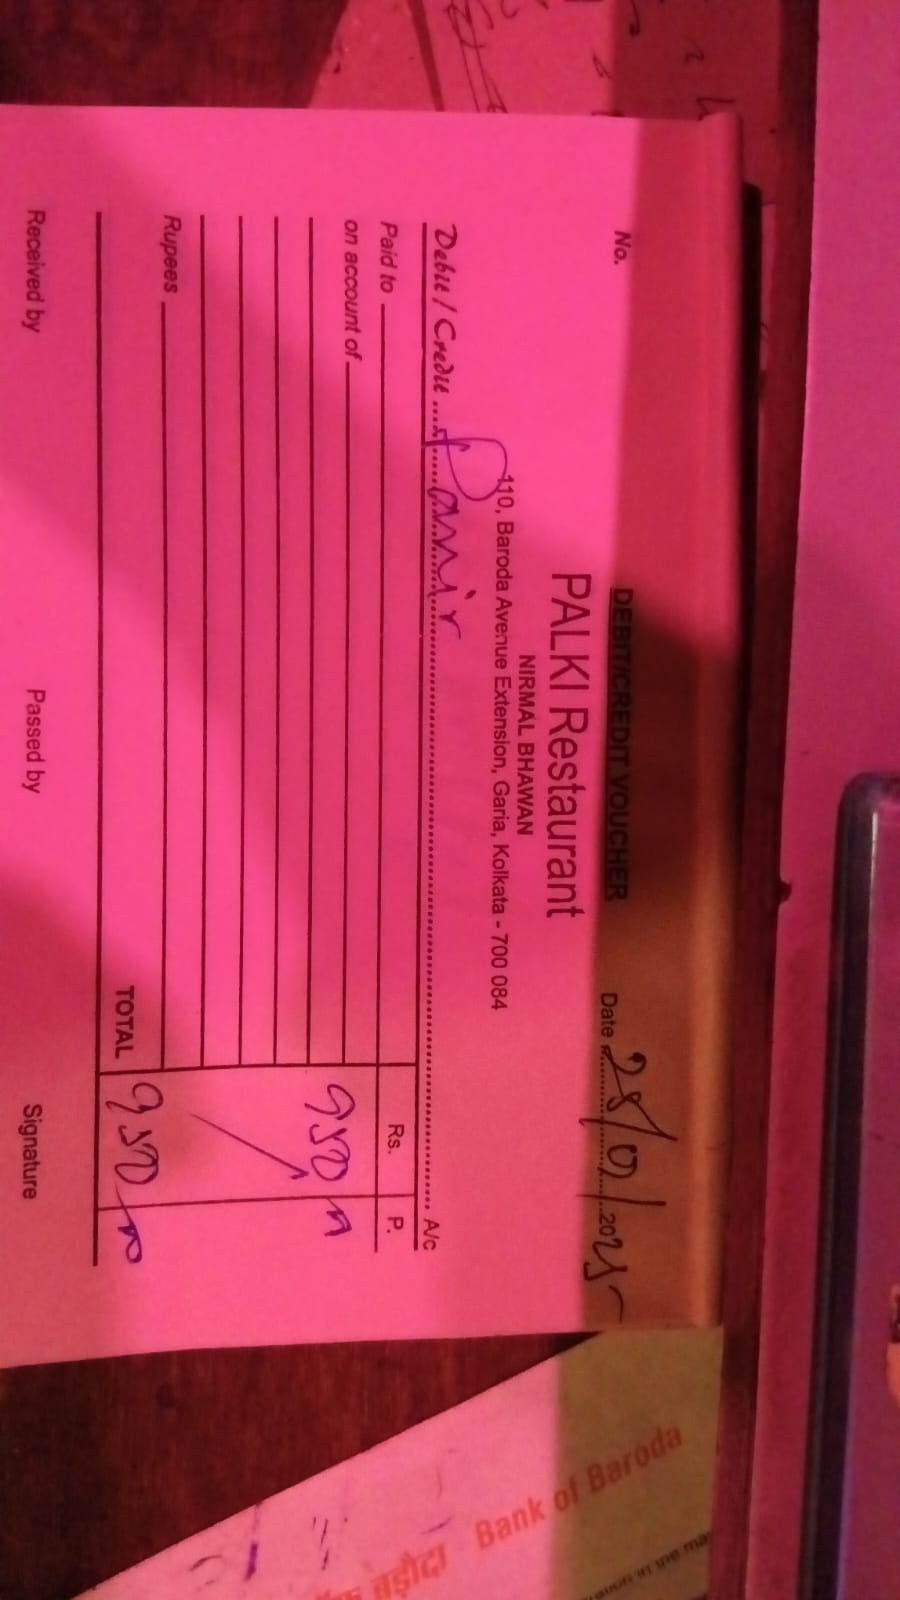 DEBIT/CREDIT VOUCHER
No.
Date 28/01/2025
PALKI Restaurant
NIRMAL BHAWAN
110, Baroda Avenue Extension, Garia, Kolkata - 700 084
Debit / Credit A/c
Rs. P.
Paid to
on account of
Rupees
TOTAL
Received by Passed by Signature
Bank of Baroda
बड़ौदा